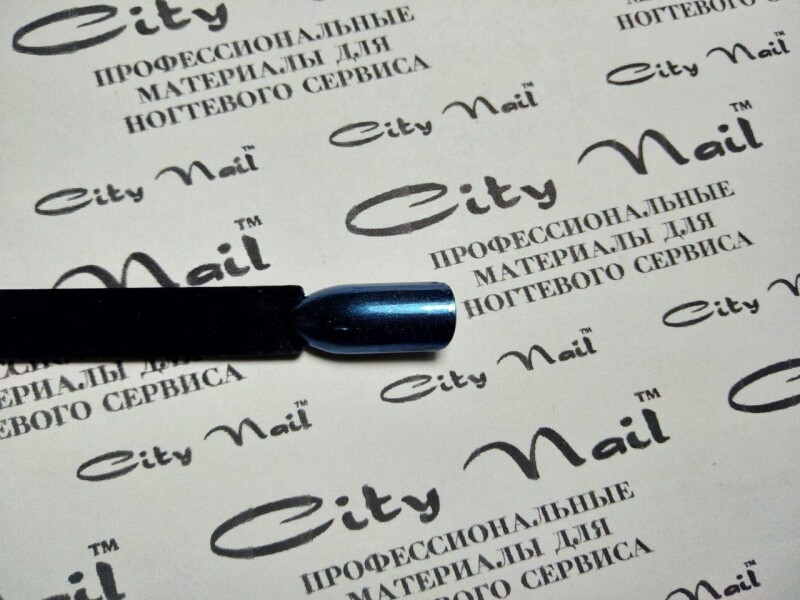 City
ПРОФЕССИОНАЛЬНЫЕ
МАТЕРИАЛЫ ДЛЯ
НОГТЕВОГО СЕРВИСА
НОГТЕВОГО
City Nail™
City Nail™
City Nail™
City Nail™
ПРОФЕССИОНАЛЬНЫЕ
МАТЕРИАЛЫ ДЛЯ
НОГТЕВОГО СЕРВИСА
Nail™
ЕРИАЛЫ ДЛЯ
ЕВОГО СЕРВИСА
City
City Nail™
City Nail™
City Nail™
ПРОФЕССИОНАЛЬНЫЕ
МАТЕРИАЛЫ ДЛЯ
ОГО СЕРВИСА
ail™
Nail™